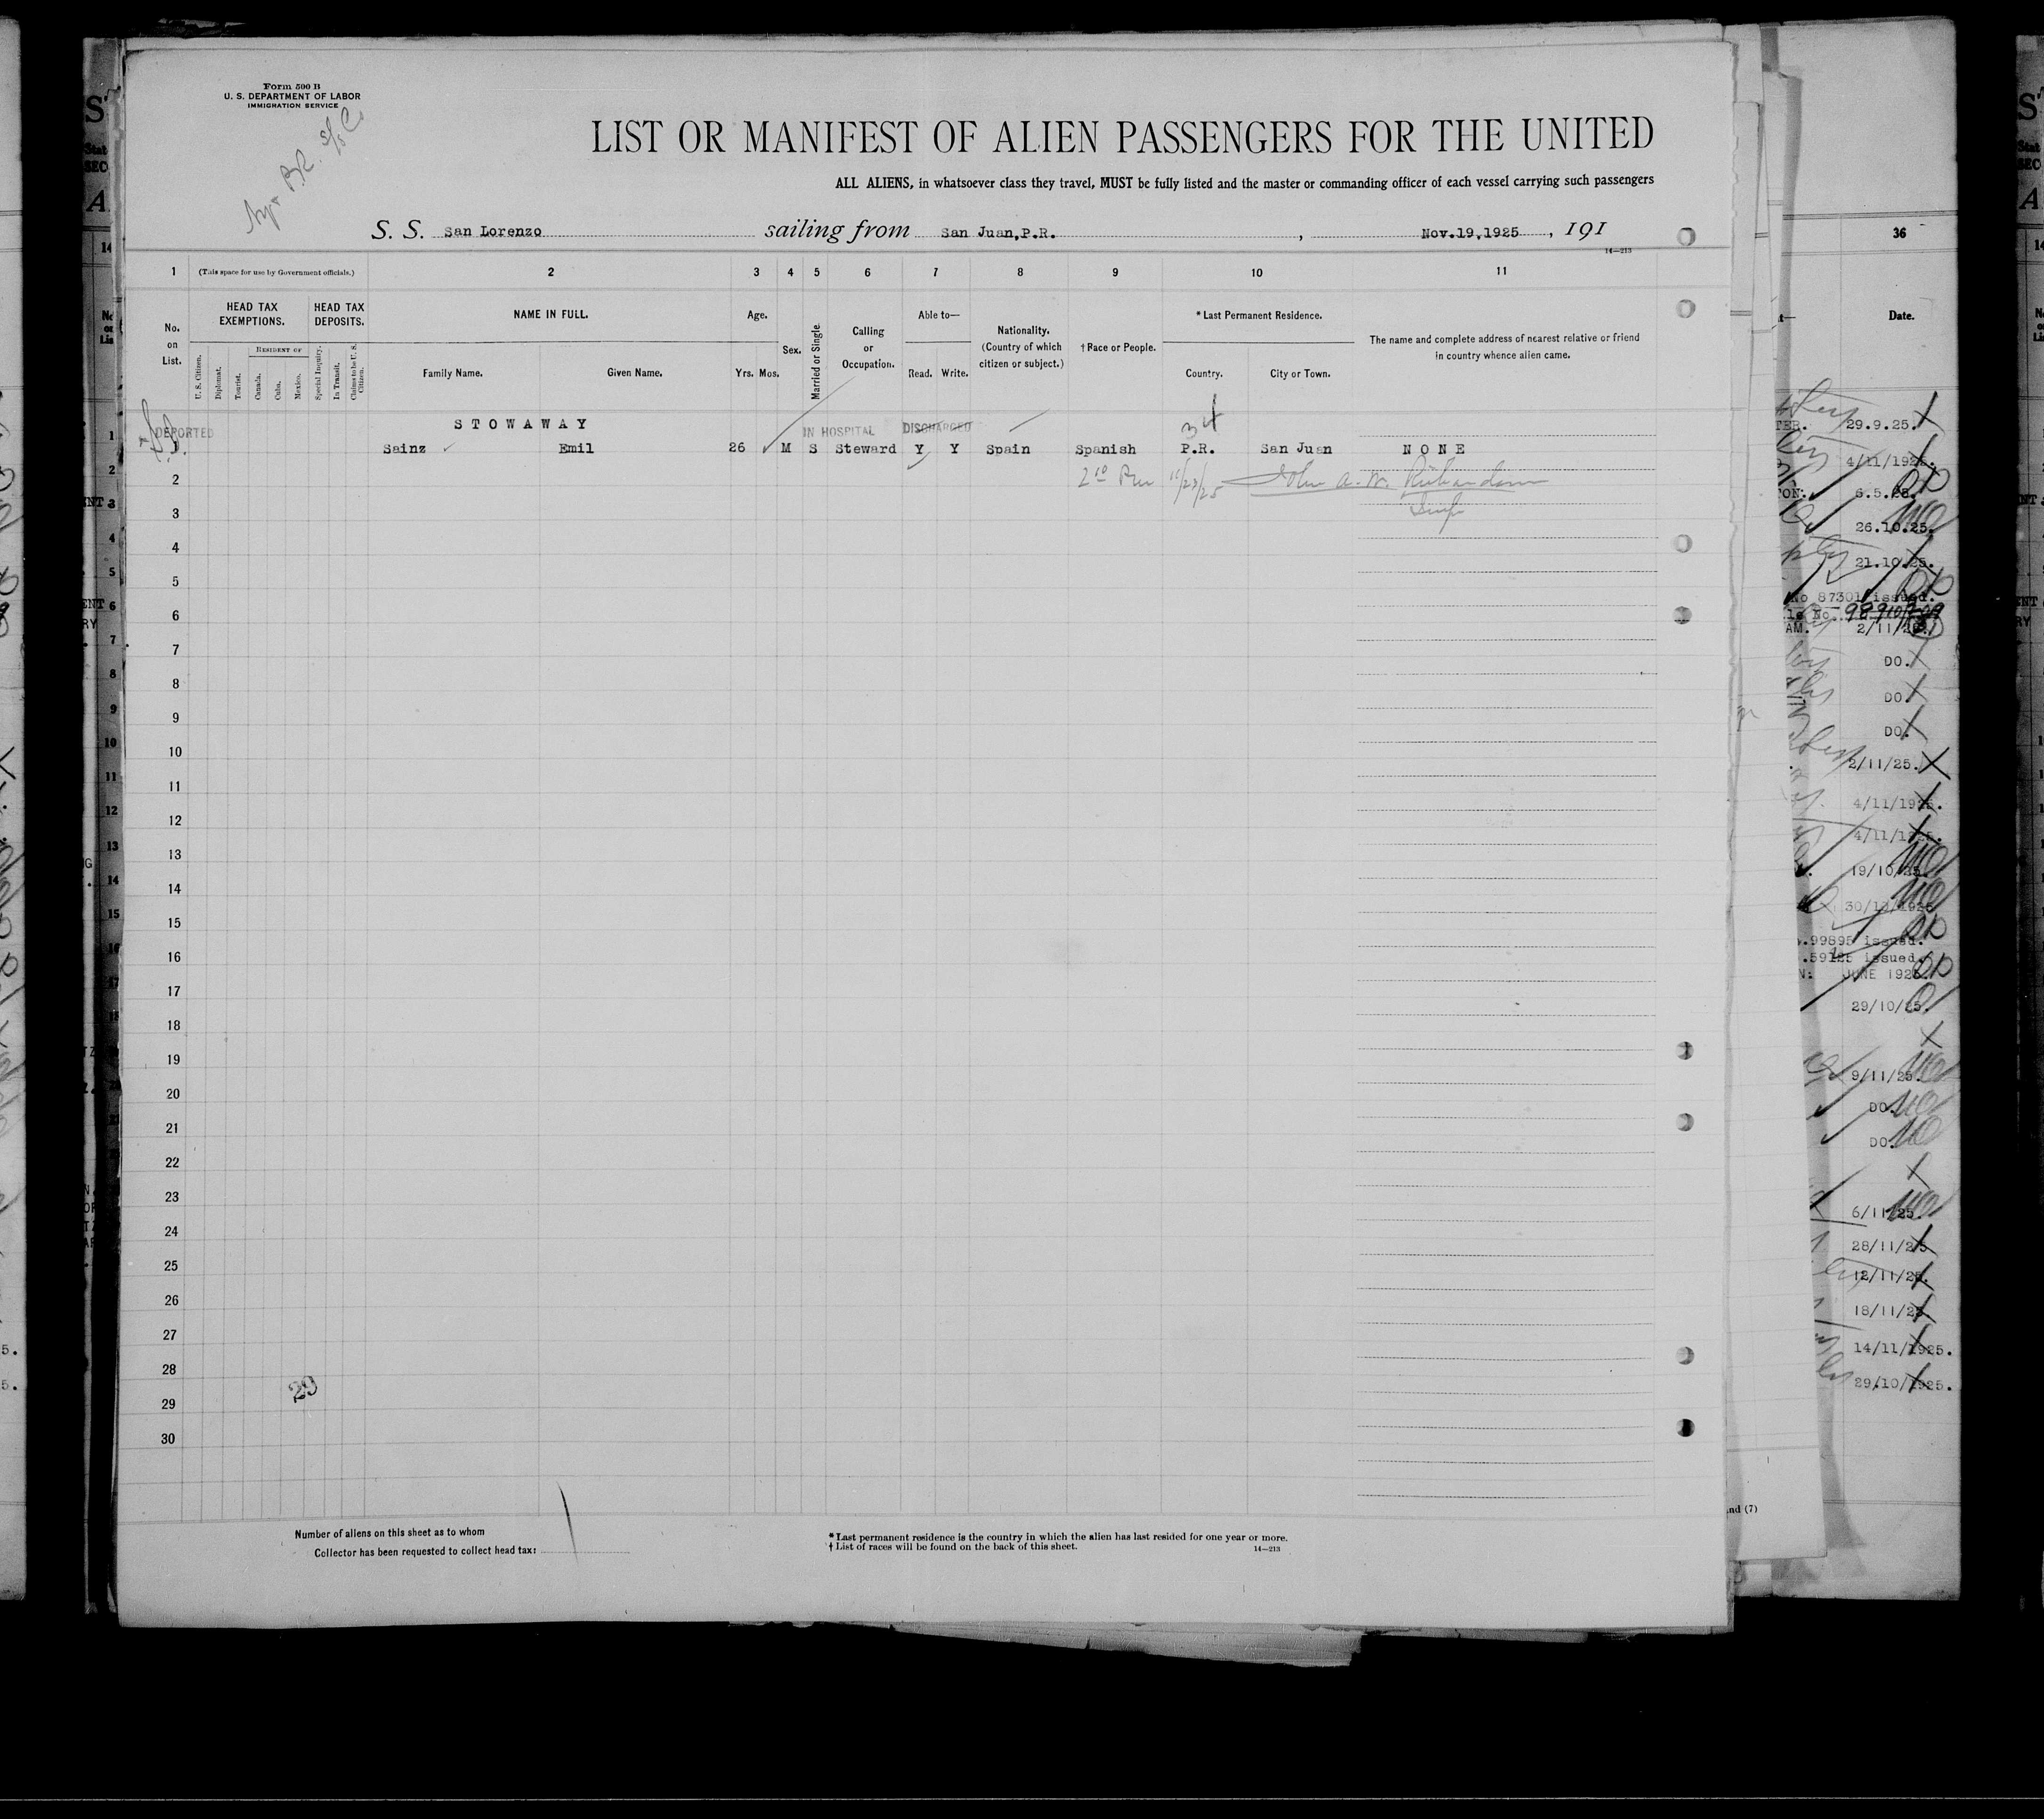 Form 500 B
U. S. DEPARTMENT OF LABOR
IMMIGRATION SERVICE
LIST OR MANIFEST OF ALIEN PASSENGERS FOR THE UNITED
ALL ALIENS, in whatsoever class they travel, MUST be fully listed and the master or commanding officer of each vessel carrying such passengers
S. S. San Lorenzo sailing from San Juan,P.R. , Nov.19,1925 , 191
14—213
1 (This space for use by Government officials.) 2 3 4 5 6 7 8 9 10 11
No. on List.
HEAD TAX EXEMPTIONS.
HEAD TAX DEPOSITS.
RESIDENT OF
U. S. Citizen.
Diplomat.
Tourist.
Canada.
Cuba.
Mexico.
Special Inquiry.
In Transit.
Claims to be U. S. Citizen.
NAME IN FULL.
Family Name. Given Name.
Age.
Yrs. Mos.
Sex.
Married or Single.
Calling or Occupation.
Able to—
Read. Write.
Nationality. (Country of which citizen or subject.)
†Race or People.
*Last Permanent Residence.
Country. City or Town.
The name and complete address of nearest relative or friend
in country whence alien came.
STOWAWAY
DEPORTED
IN HOSPITAL DISCHARGED
1 Sainz Emil 26 M S Steward Y Y Spain Spanish P.R. San Juan NONE
11/23/25 John A. W. Richardson
2
3
4
5
6
7
8
9
10
11
12
13
14
15
16
17
18
19
20
21
22
23
24
25
26
27
28
29
30
29
Number of aliens on this sheet as to whom
Collector has been requested to collect head tax:
*Last permanent residence is the country in which the alien has last resided for one year or more.
†List of races will be found on the back of this sheet. 14—213
36
Date.
29.9.25.
4/11/1925.
6.5.25.
26.10.25.
21.10.25.
No 87301 issued.
2/11/25.
DO.
DO
DO.
2/11/25.
4/11/1925.
4/11/1925.
19/10/25.
30/10/1925
.99895 issued.
.59125 issued.
JUNE 1925.
29/10/25.
9/11/25.
DO.
DO.
6/11/25.
28/11/25
12/11/25.
18/11/25
14/11/1925.
29/10/1925.
nd (7)